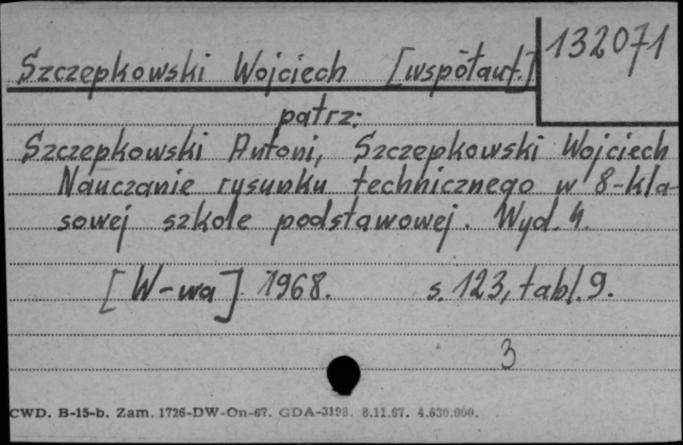 132071
Szczepkowski Wojciech [współaut.]
patrz:
Szczepkowski Antoni, Szczepkowski Wojciech
Nauczanie rysunku technicznego w 8-kla-
sowej szkole podstawowej. Wyd. 4.
[W-wa] 1968. s. 123, tabl. 9.
3
CWD. B-15-b. Zam. 1726-DW-On-67. GDA-3198. 8.11.67. 4.630.000.